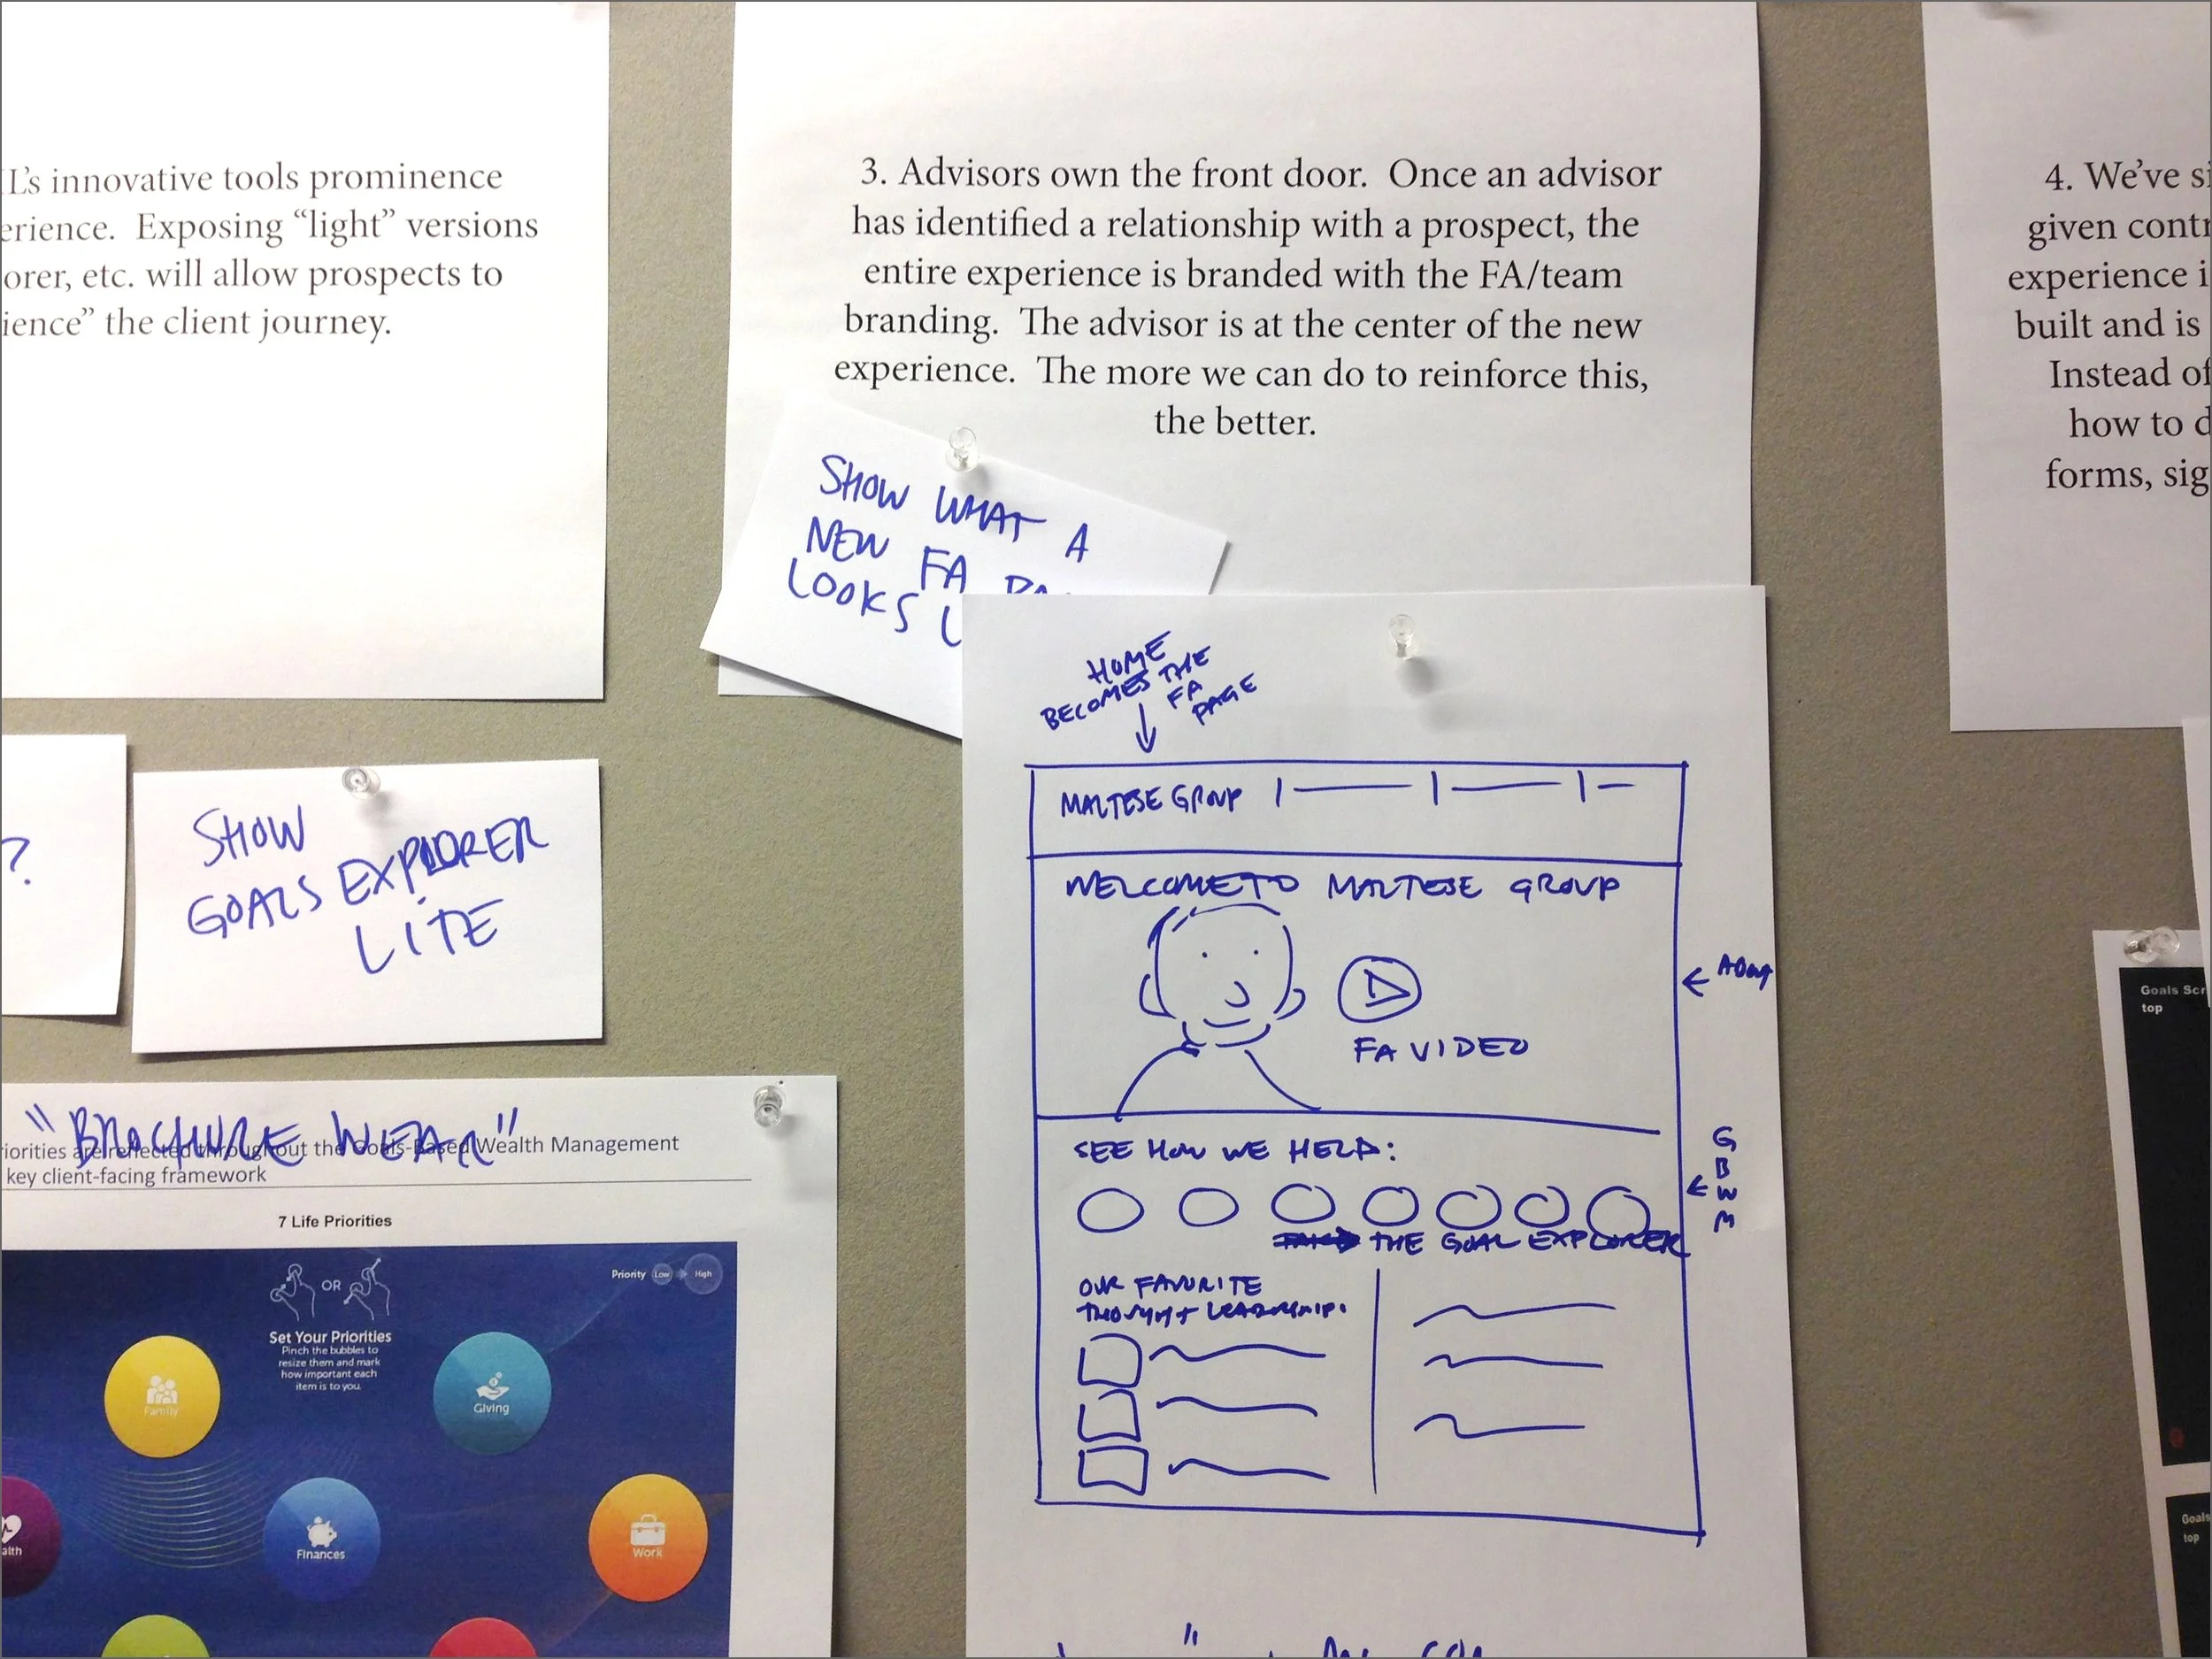 L's innovative tools prominence
erience. Exposing “light” versions
orer, etc. will allow prospects to
ience” the client journey.
3. Advisors own the front door. Once an advisor
has identified a relationship with a prospect, the
entire experience is branded with the FA/team
branding. The advisor is at the center of the new
experience. The more we can do to reinforce this,
the better.
4. We've si
given contr
experience i
built and is
Instead of
how to d
forms, sig
SHOW WHAT A
NEW FA
LOOKS L
HOME
BECOMES THE
FA
PAGE
MALTESE GROUP
WELCOME TO MALTESE GROUP
FA VIDEO
SEE HOW WE HELP:
THE GOAL EXPLORER
G
B
W
M
OUR FAVORITE
THOUGHT LEADERSHIP:
?
SHOW
GOALS EXPLORER
LITE
"BROCHURE WEAR"
iorities are reflected throughout the Goals-Based Wealth Management
key client-facing framework
7 Life Priorities
OR
Priority Low High
Set Your Priorities
Pinch the bubbles to
resize them and mark
how important each
item is to you.
Family
Giving
alth
Finances
Work
Goals Scr
top
Goals
top